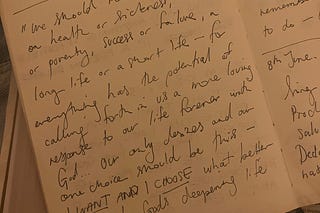 "We should n
on health or sickness,
or poverty, success or failure, a
long life or a short life – for
everything has the potential of
calling forth in us a more loving
response to our life forever with
God... Our only desires and our
one choice should be this –
I WANT AND I CHOOSE what better
God's deepening life
remembe
to do – t
8th June.